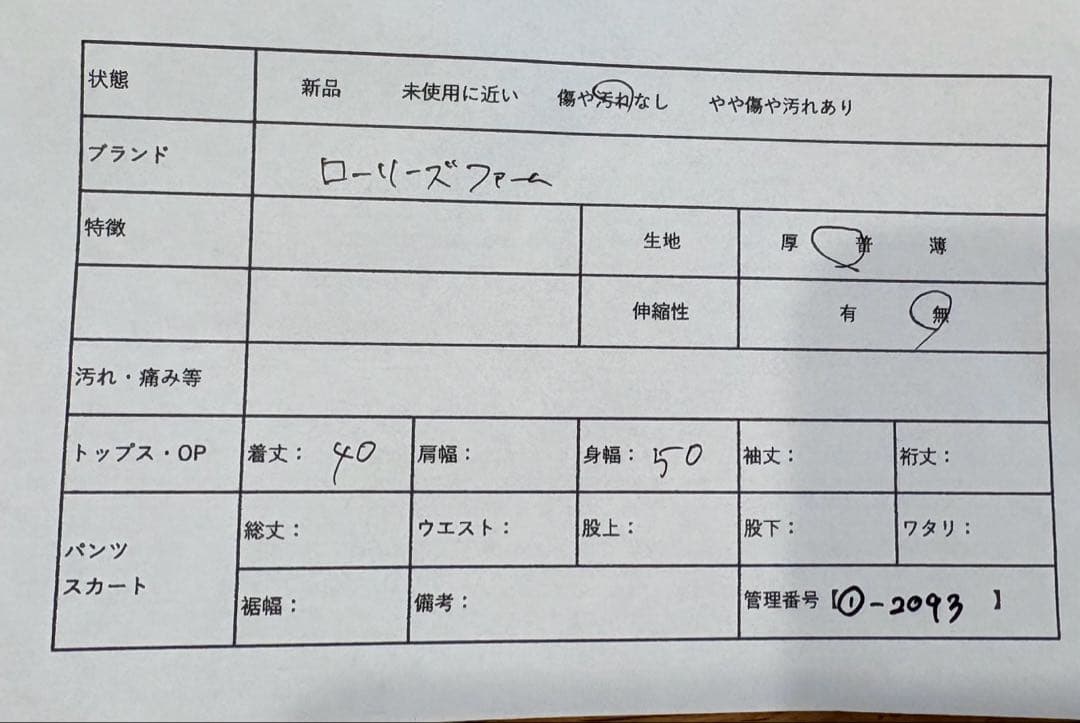 状態 新品 未使用に近い 傷や汚れなし やや傷や汚れあり
ブランド ローリーズファーム
特徴 生地 厚 普 薄
伸縮性 有 無
汚れ・痛み等
トップス・OP 着丈: 40 肩幅: 身幅: 50 袖丈: 裄丈:
パンツ
スカート
総丈: ウエスト: 股上: 股下: ワタリ:
裾幅: 備考: 管理番号【①-2093 】